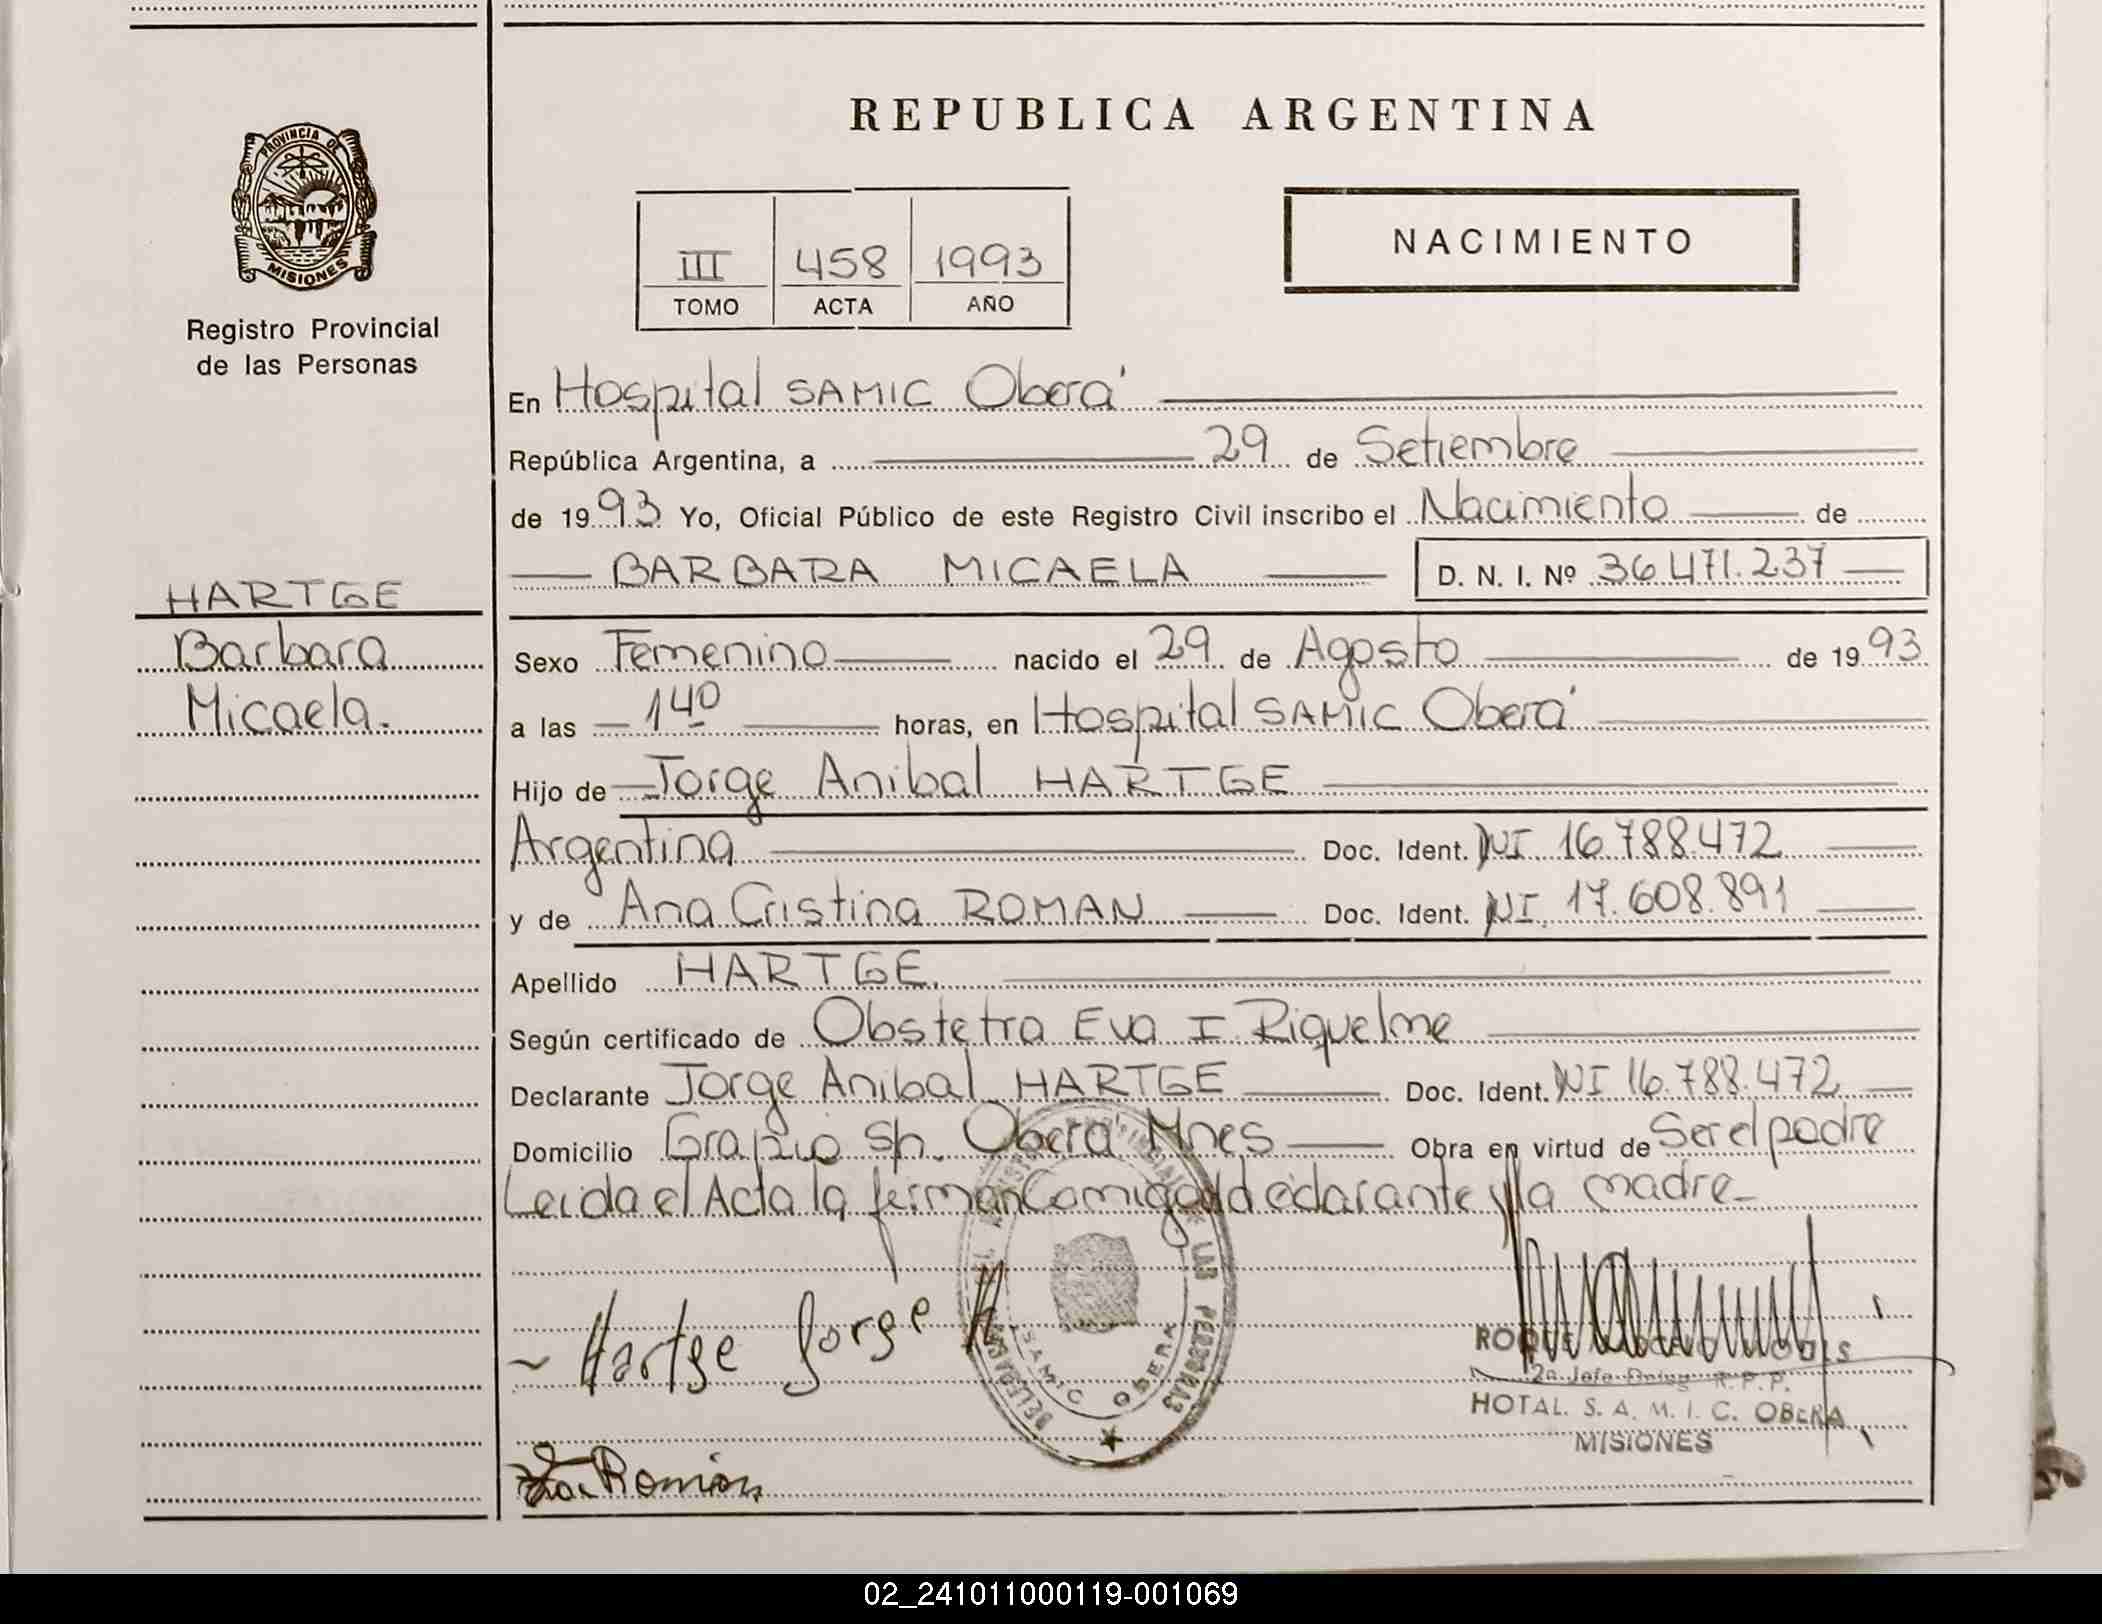 PROVINCIA DE
MISIONES
Registro Provincial
de las Personas
HARTGE
Barbara
Micaela.
REPUBLICA ARGENTINA
III 458 1993
TOMO ACTA AÑO
NACIMIENTO
En Hospital SAMIC Oberá
República Argentina, a 29 de Setiembre
de 1993 Yo, Oficial Público de este Registro Civil inscribo el Nacimiento de
BARBARA MICAELA D. N. I. Nº 36.471.237
Sexo Femenino nacido el 29 de Agosto de 1993
a las 14º horas, en Hospital SAMIC Oberá
Hijo de Jorge Anibal HARTGE
Argentina Doc. Ident. NI 16.788.472
y de Ana Cristina ROMAN Doc. Ident. NI. 17.608.891
Apellido HARTGE.
Según certificado de Obstetra Eva I. Riquelme
Declarante Jorge Anibal HARTGE Doc. Ident. NI 16.788.472
Domicilio S/n. Oberá Mnes Obra en virtud de Ser el padre
Leida el Acta la firman Comigo el declarante y la madre
Hartge Jorge A
SAMIC OBERA
LAS PERSONAS
ROQUE
2º Jefe R.P.P.
HOTAL. S. A. M. I. C. OBERA
MISIONES
Roman
02_241011000119-001069